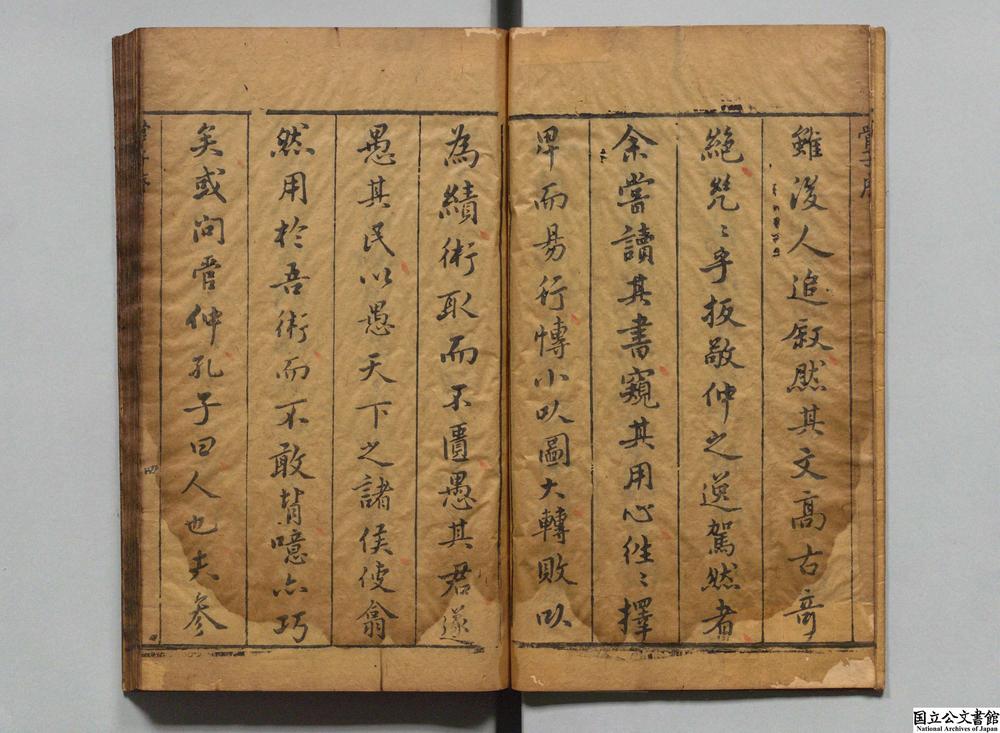 管子序
雖後人追叙然其文高古奇
絶咒〻乎扳敬仲之逆駕然者
余嘗讀其書窺其用心徃〻擇
卑而易行慱小以圖大轉敗以
為績術取而不匱愚其君遂
愚其民以愚天下之諸侯使翕
然用於吾術而不敢背噫亦巧
矣或问管仲孔子曰人也夫参
国立公文書館
National Archives of Japan